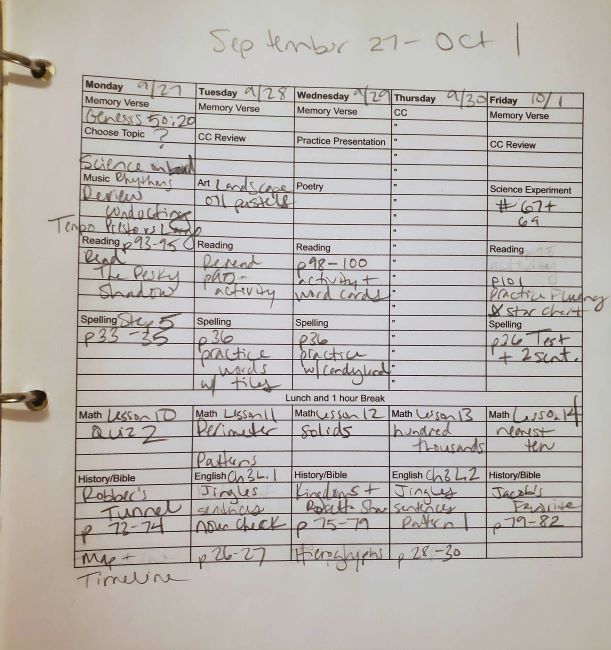 September 27 - Oct 1
Monday 9/27 Tuesday 9/28 Wednesday 9/29 Thursday 9/30 Friday 10/1
Memory Verse Memory Verse Memory Verse CC Memory Verse
Genesis 50:20 "
Choose Topic ? CC Review Practice Presentation " CC Review
"
Science "
Music Rhythms Art Landscape Poetry " Science Experiment
Review oil pastels " # 67+
conducting " 69
Tempo
Reading p93-95 Reading Reading " Reading
Read Reread p98-100 "
The Pesky p90- activity + " p101
Shadow activity word cards " Practice Fluency
" & star chart
Spelling Step 5 Spelling Spelling " Spelling
p33-35 p36 p36 " p26 Test
practice practice " + 2 sent.
words w/ candyland "
w/ tiles "
Lunch and 1 hour Break
Math Lesson 10 Math Lesson 11 Math Lesson 12 Math Lesson 13 Math Lesson 14
Quiz 2 Perimeter Solids hundred nearest
thousands ten
Patterns
History/Bible English Ch3L.1 History/Bible English Ch3L2 History/Bible
Robber's Jingles Kingdoms + Jingles Jacob's
Tunnel sentences sentences Favorite
p 73-74 noun check p 75-79 Pattern 1 p79-82
Map + p 26-27 Hieroglyphs p 28-30
Timeline